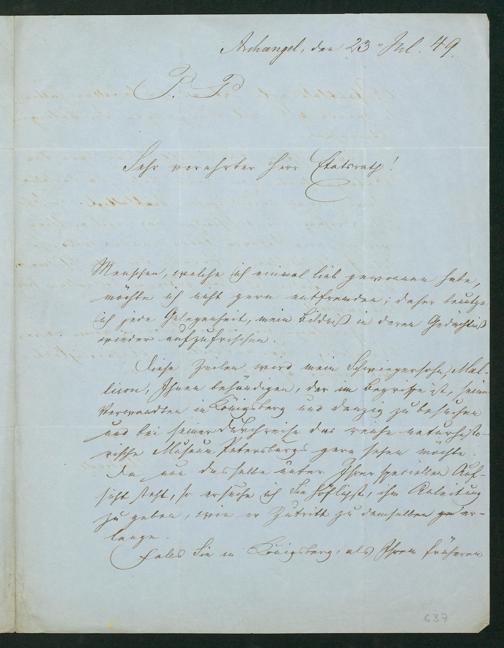 Archangel, den 23 Jul. 49.
P. P.
Sehr verehrter Herr Etatsrath!
Menschen, welche ich einmal lieb gewonnen habe,
möchte ich nicht gern entfremden; daher benutze
ich jede Gelegenheit, mein Bildniß in deren Gedächtniß
wieder aufzufrischen.
Diese Zeilen wird mein Schwiegersohn,
Ihnen behändigen, der im Begriffe ist, seine
Verwandten in Königsberg und Danzig zu besuchen
und bei seiner Durchreise das reiche naturhisto-
rische Museum Petersburgs gern sehen möchte.
Da nun dasselbe unter Ihrer speciellen Auf-
sicht steht, so ersuche ich Sie höflichst, ihm Anleitung
zu geben, wie er Zutritt zu demselben er-
lange.
Falls Sie in Königsberg, als Ihrem früheren
637